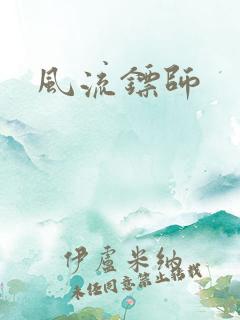 風流鏢師
伊盧米納
未經同意禁止轉載